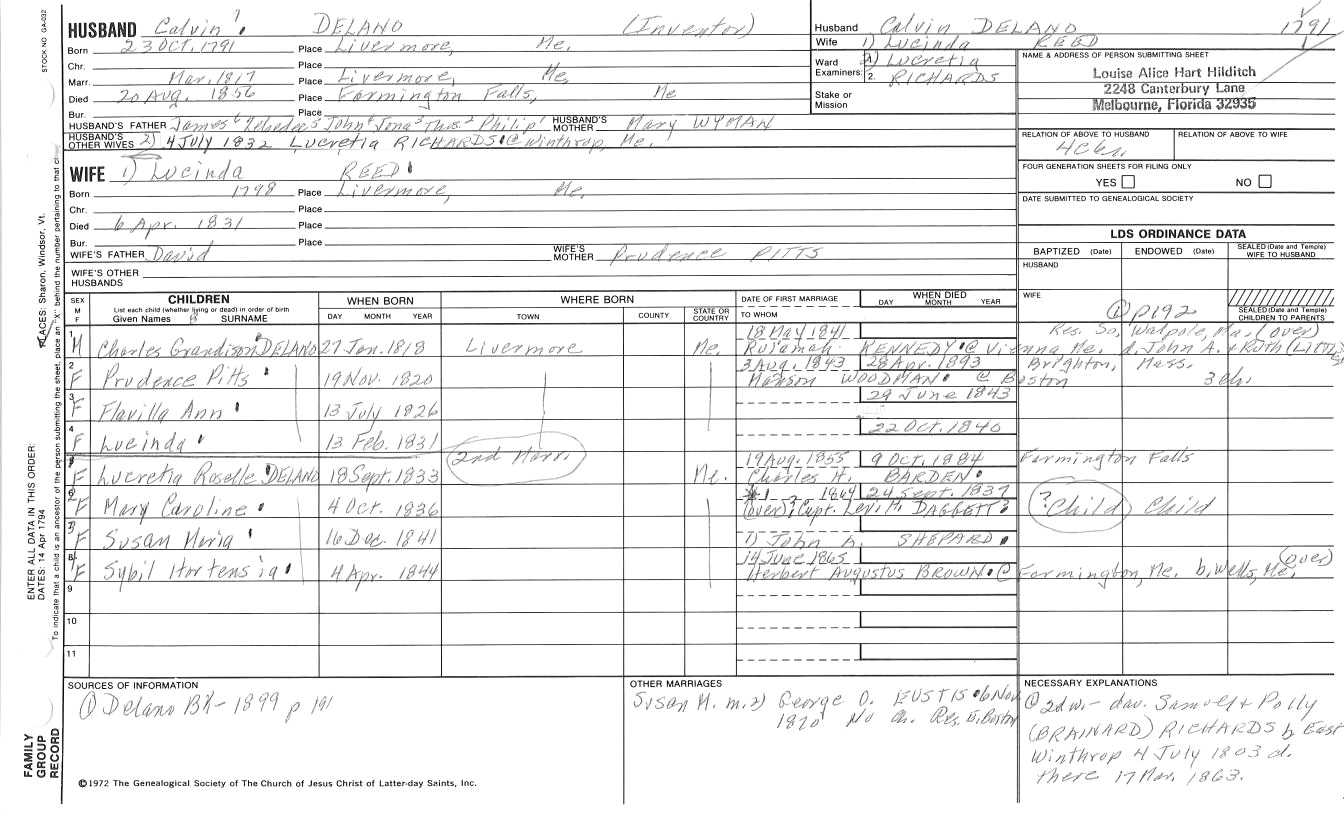 STOCK NO. GA-032
HUSBAND Calvin 7 DELANO (Inventor)
Born 23 OCT. 1791 Place Livermore, Me.
Chr. Place
Marr. Mar. 1817 Place Livermore, Me.
Died 20 Aug. 1856 Place Farmington Falls, Me
Bur. Place
HUSBAND'S FATHER James 6 John 4 Jona 3 Thos. 2 Philip 1 HUSBAND'S MOTHER Mary WYMAN
HUSBAND'S OTHER WIVES 2) 4 July 1832 Lucretia RICHARDS @ Winthrop, Me.
Husband Calvin DELANO 1791
Wife 1) Lucinda REED
Ward 2) Lucretia
Examiners: 2. RICHARDS
Stake or
Mission
NAME & ADDRESS OF PERSON SUBMITTING SHEET
Louise Alice Hart Hilditch
2248 Canterbury Lane
Melbourne, Florida 32935
RELATION OF ABOVE TO HUSBAND RELATION OF ABOVE TO WIFE
FOUR GENERATION SHEETS FOR FILING ONLY
YES NO
DATE SUBMITTED TO GENEALOGICAL SOCIETY
WIFE 1) Lucinda REED
Born 1798 Place Livermore, Me.
Chr. Place
Died 6 Apr. 1831 Place
Bur. Place
WIFE'S FATHER David WIFE'S MOTHER Prudence PITTS
WIFE'S OTHER
HUSBANDS
LDS ORDINANCE DATA
BAPTIZED (Date) ENDOWED (Date) SEALED (Date and Temple) WIFE TO HUSBAND
HUSBAND
WIFE
① p192
SEALED (Date and Temple) CHILDREN TO PARENTS
SEX M F
CHILDREN
List each child (whether living or dead) in order of birth
Given Names SURNAME
WHEN BORN
DAY MONTH YEAR
WHERE BORN
TOWN COUNTY STATE OR COUNTRY
DATE OF FIRST MARRIAGE
TO WHOM
WHEN DIED
DAY MONTH YEAR
18 May 1841 Res. So. Walpole, Ma. (over)
1 M Charles Grandison DELANO 27 Jan. 1818 Livermore Me. Rujamah KENNEDY @ Vienna Me. d. John A. & Ruth
3 Aug. 1843 28 Apr. 1893 Brighton, Mass.
2 F Prudence Pitts 19 Nov. 1820 Manson WOODMAN @ Boston 3 ch.
29 June 1843
3 F Flavilla Ann 13 July 1826
22 Oct. 1840
4 F Lucinda 13 Feb. 1831
2nd Marr.
19 Aug. 1855 9 Oct. 1884 Farmington Falls
F Lucretia Roselle DELANO 18 Sept. 1833 Me. Charles H. BARDEN
1864 24 Sept. 1837
F Mary Caroline 4 Oct. 1836 (over) ? Capt. Levi H. DAGGETT? ?Child Child
F Susan Maria 16 Dec. 1841 1) John h. SHEPARD
14 June 1865 (over)
F Sybil Hortensia 4 Apr. 1844 Herbert Augustus BROWN @ Farmington, Me. b. Wells, Me.
9
10
11
SOURCES OF INFORMATION
① Delano Bk - 1899 p 191
OTHER MARRIAGES
Susan M. m. 2) George O. EUSTIS 6 Nov
1870 No ch. Res. E. Boston
NECESSARY EXPLANATIONS
@ 2d w. - dau. Samuel & Polly
(BRAINARD) RICHARDS b East
Winthrop 4 July 1803 d.
there 17 Mar. 1863.
©1972 The Genealogical Society of The Church of Jesus Christ of Latter-day Saints, Inc.
FAMILY
GROUP
RECORD
ENTER ALL DATA IN THIS ORDER:
DATES: 14 Apr 1794
PLACES: Sharon, Windsor, Vt.
To indicate that a child is an ancestor of the person submitting the sheet, place an "X" behind the number pertaining to that